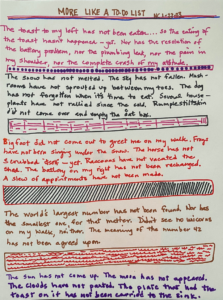 MORE LIKE A TO DO LIST
The toast to my left has not been eaten... so the eating
of the toast hasn't happened - yet. Nor has the resolution
of the battery problem, nor the plumbing leak, nor the pain in
my shoulder, nor the complete crash of my attitude.
The snow has not melted. The sky has not fallen. Mush-
rooms have not sprouted up between my toes. The dog
has not forgotten when it's time to eat. Several house-
plants have not rallied since the cold. Rumplestiltskin
did not come over and empty the cat box.
Bigfoot did not come out to greet me on my walk. Frogs
have not been singing under the snow. The horse has not
scrubbed yet. Raccoons have not vacated the
shed. The battery on my light has not been recharged.
A slew of appointments have not been made.
The world's largest number has not been found. Nor has
the smallest one, for that matter. Didn't see no unicorns
on my walk, neither. The meaning of the number 42
has not been agreed upon.
The sun has not come up. The moon has not appeared.
The clouds have not parted. The plate that had the
toast on it has not been carried to the sink.